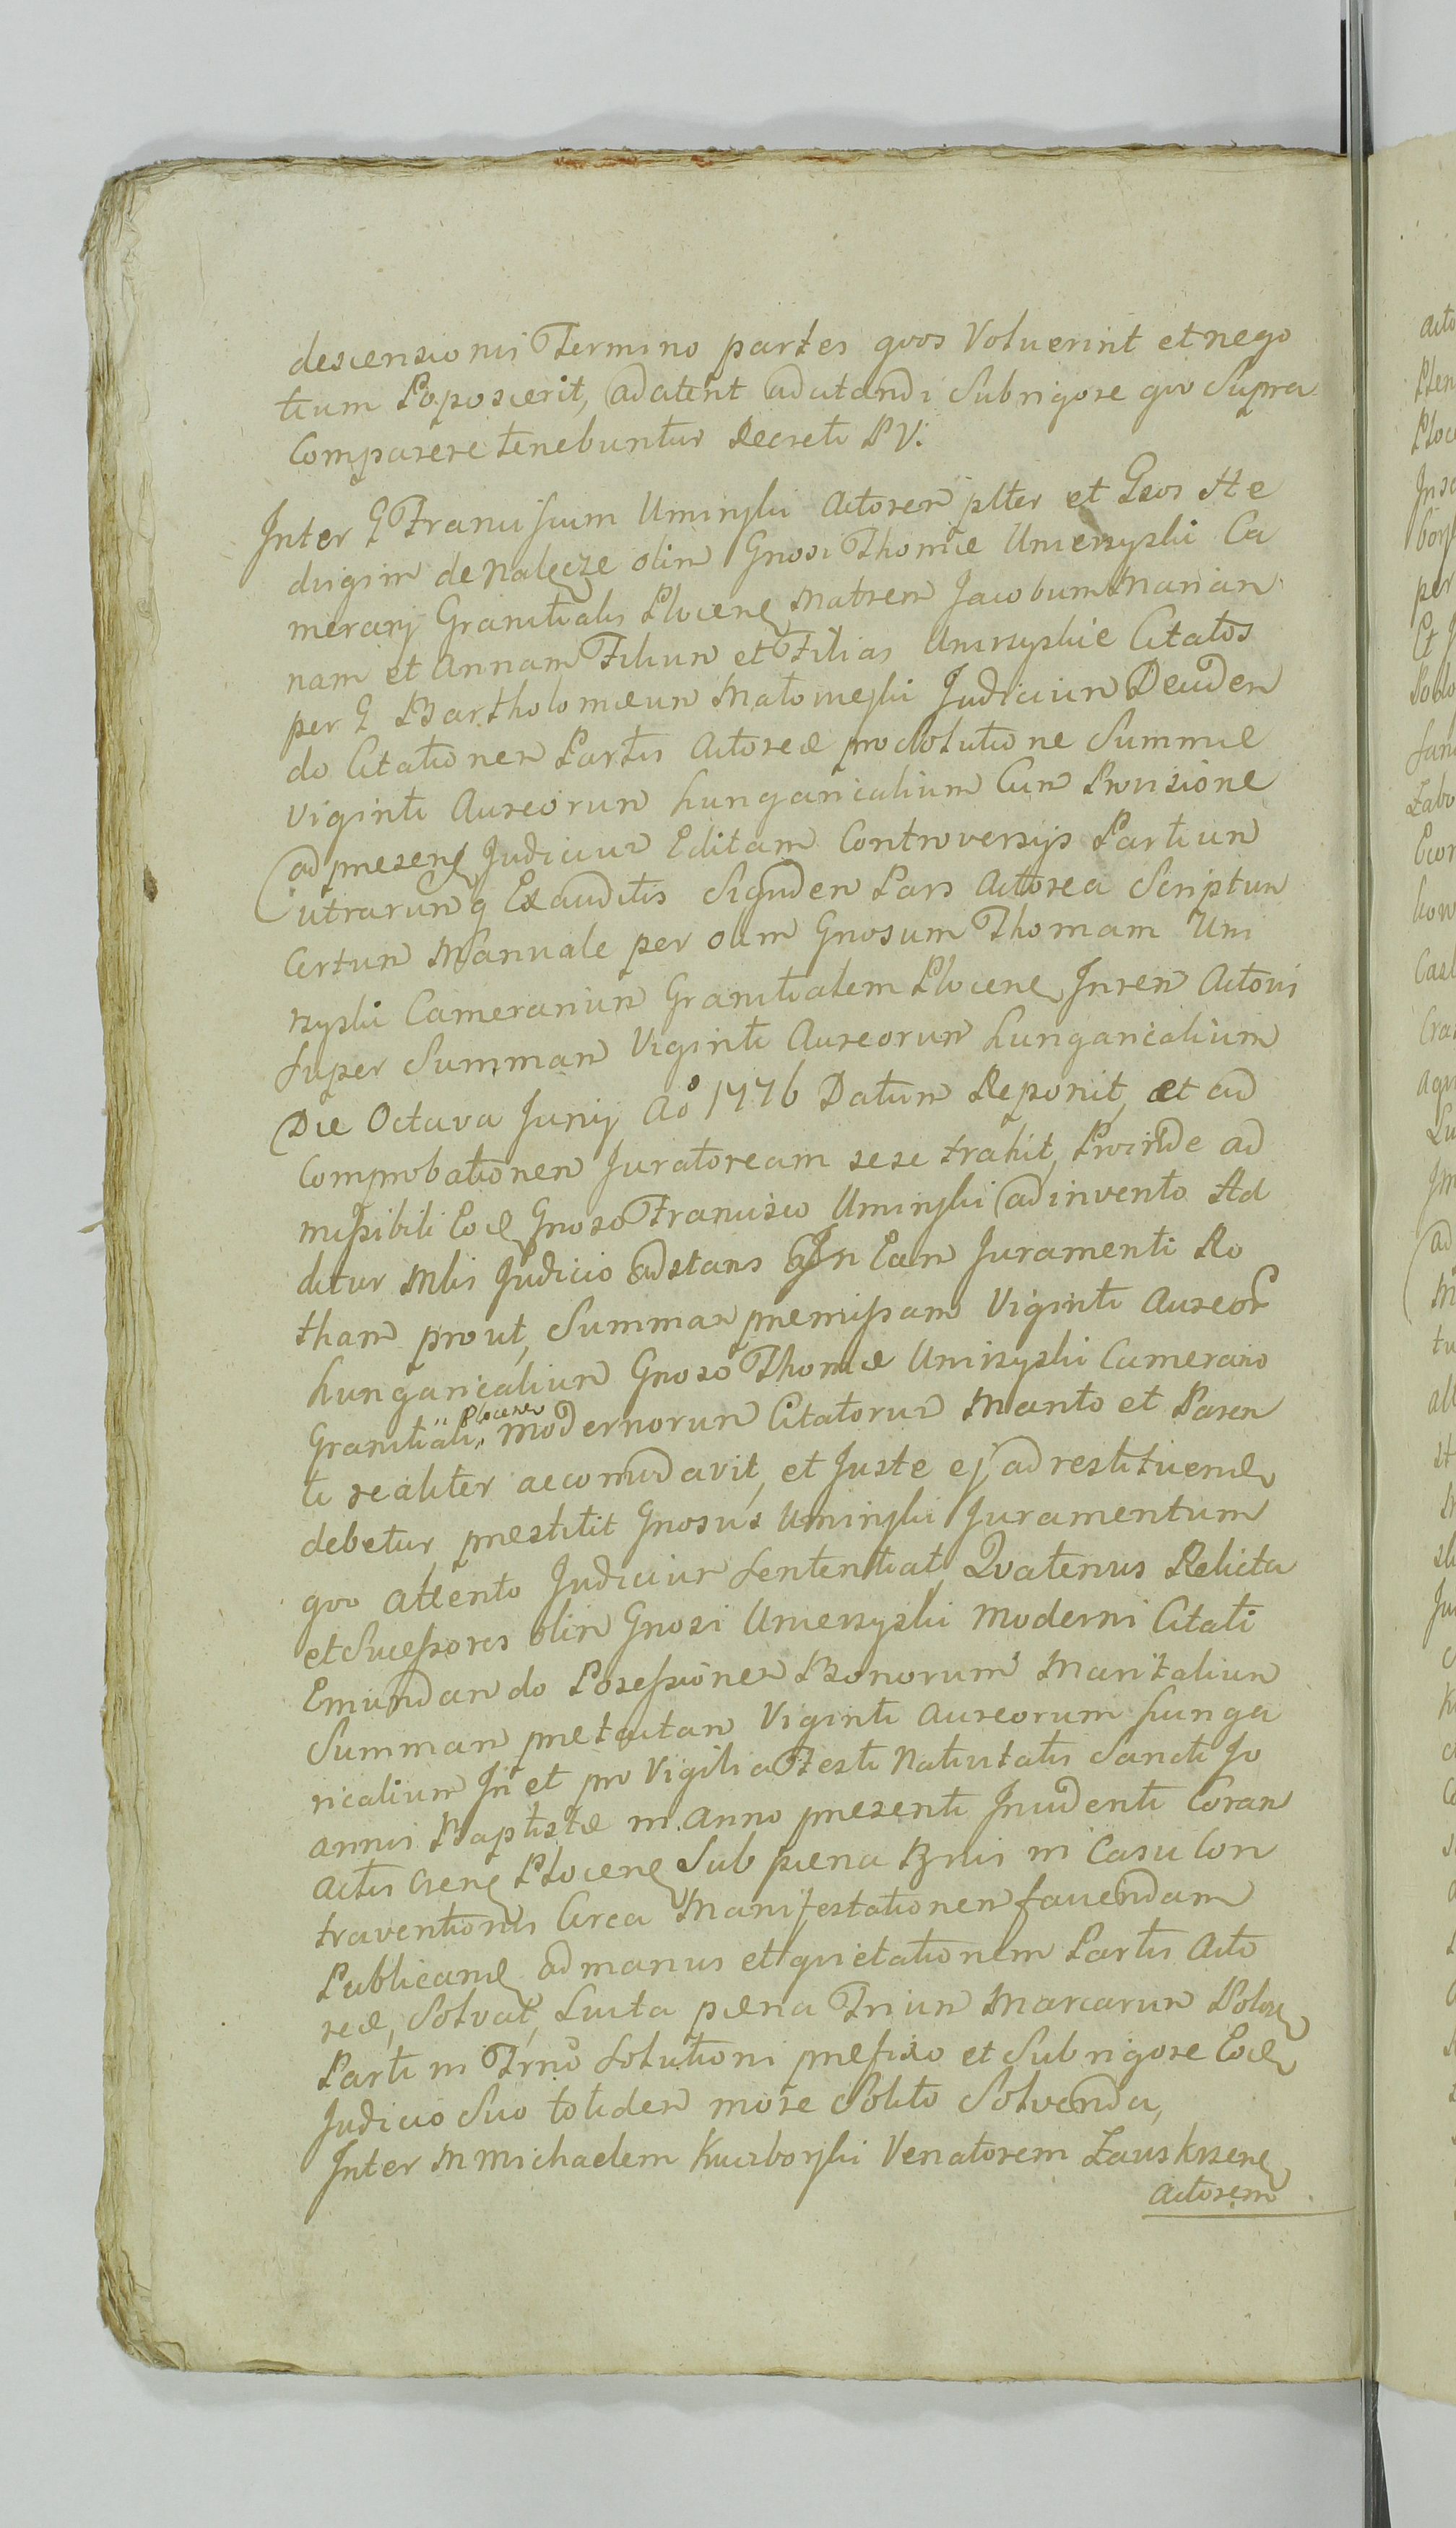 descensionis Termino partes qvos Voluerint et nego
tium Poposcerit, ad atent ad citandi Sub rigore qvo Supra
Comparere tenebuntur Decreti P V:
Inter G Franciscum Uminski Actorem plter et Gsos He
dvigim de Nalęcze olim Gnosi Thomæ Umienyski Ca
merarij Granitialis Plocenę Matrem Jacobum Marian
nam et Annam Filium et Filias Uminyskie Citatos
per G Bartholomeum Matowieski Judicium Deciden
do Citationem Partis Actoreæ pro Solutione Summæ
Viginti Aureorum hungaricalium Cum Provisione
ad presens Judicium Editam Controversijs Partium
utrarumq Exauditis Siqvidem Pars Actorea Scriptum
Certum Manuale per olim Gnosum Thomam Umi
nyski Camerarium Granitialem Plocenę Inrem Actoris
Super Summam Viginti Aureorum hungaricalium
Die Octava Junij Ao 1776 Datum Reponit, et ad
Comprobationem Juratoream sese trahit, Proinde ad
missibili Eoę Gnoso Francisco Uminski ad invento Ad
ditur Mlis Judicio adstans In Eam Juramenti Ro
tham prout, Summam premissam Viginti Aureor
hungaricalium Gnoso Thomæ Uminyski Camerario
Granitiali, Plocenę modernorum Citatorum Marito et Paren
ti realiter accomodavit, et Juste ej ad restituendę
debetur, prestitit Gnosus Uminski Juramentum
qvo attento Judicium Sententiat, Qvatenus Relicta
et Sucessores olim Gnosi Umienyski moderni Citati
Emundando Possessionem Bonorum Maritalium
Summam pretactam Viginti Aureorum hunga
ricalium In et pro Vigilia Festi Nativitatis Sancti Jo
annis Baptistæ in Anno presenti Incidenti Coram
Actis Csenę Plocenę Sub pæna Bnis in Casu Con
traventionis Circa Manifestationem faciendam
Publicandę ad manus et qvietationem Partis Acto
reæ, Solvat, Luita pæna Trium Marcarum Polonę
Parti in Trno Solutioni prefixo et Sub rigore Eodę
Judicio Suo totidem more Solito Solvenda,
Inter M Michaelem Kuczborski Venatorem Zauskrzenę
Actorem